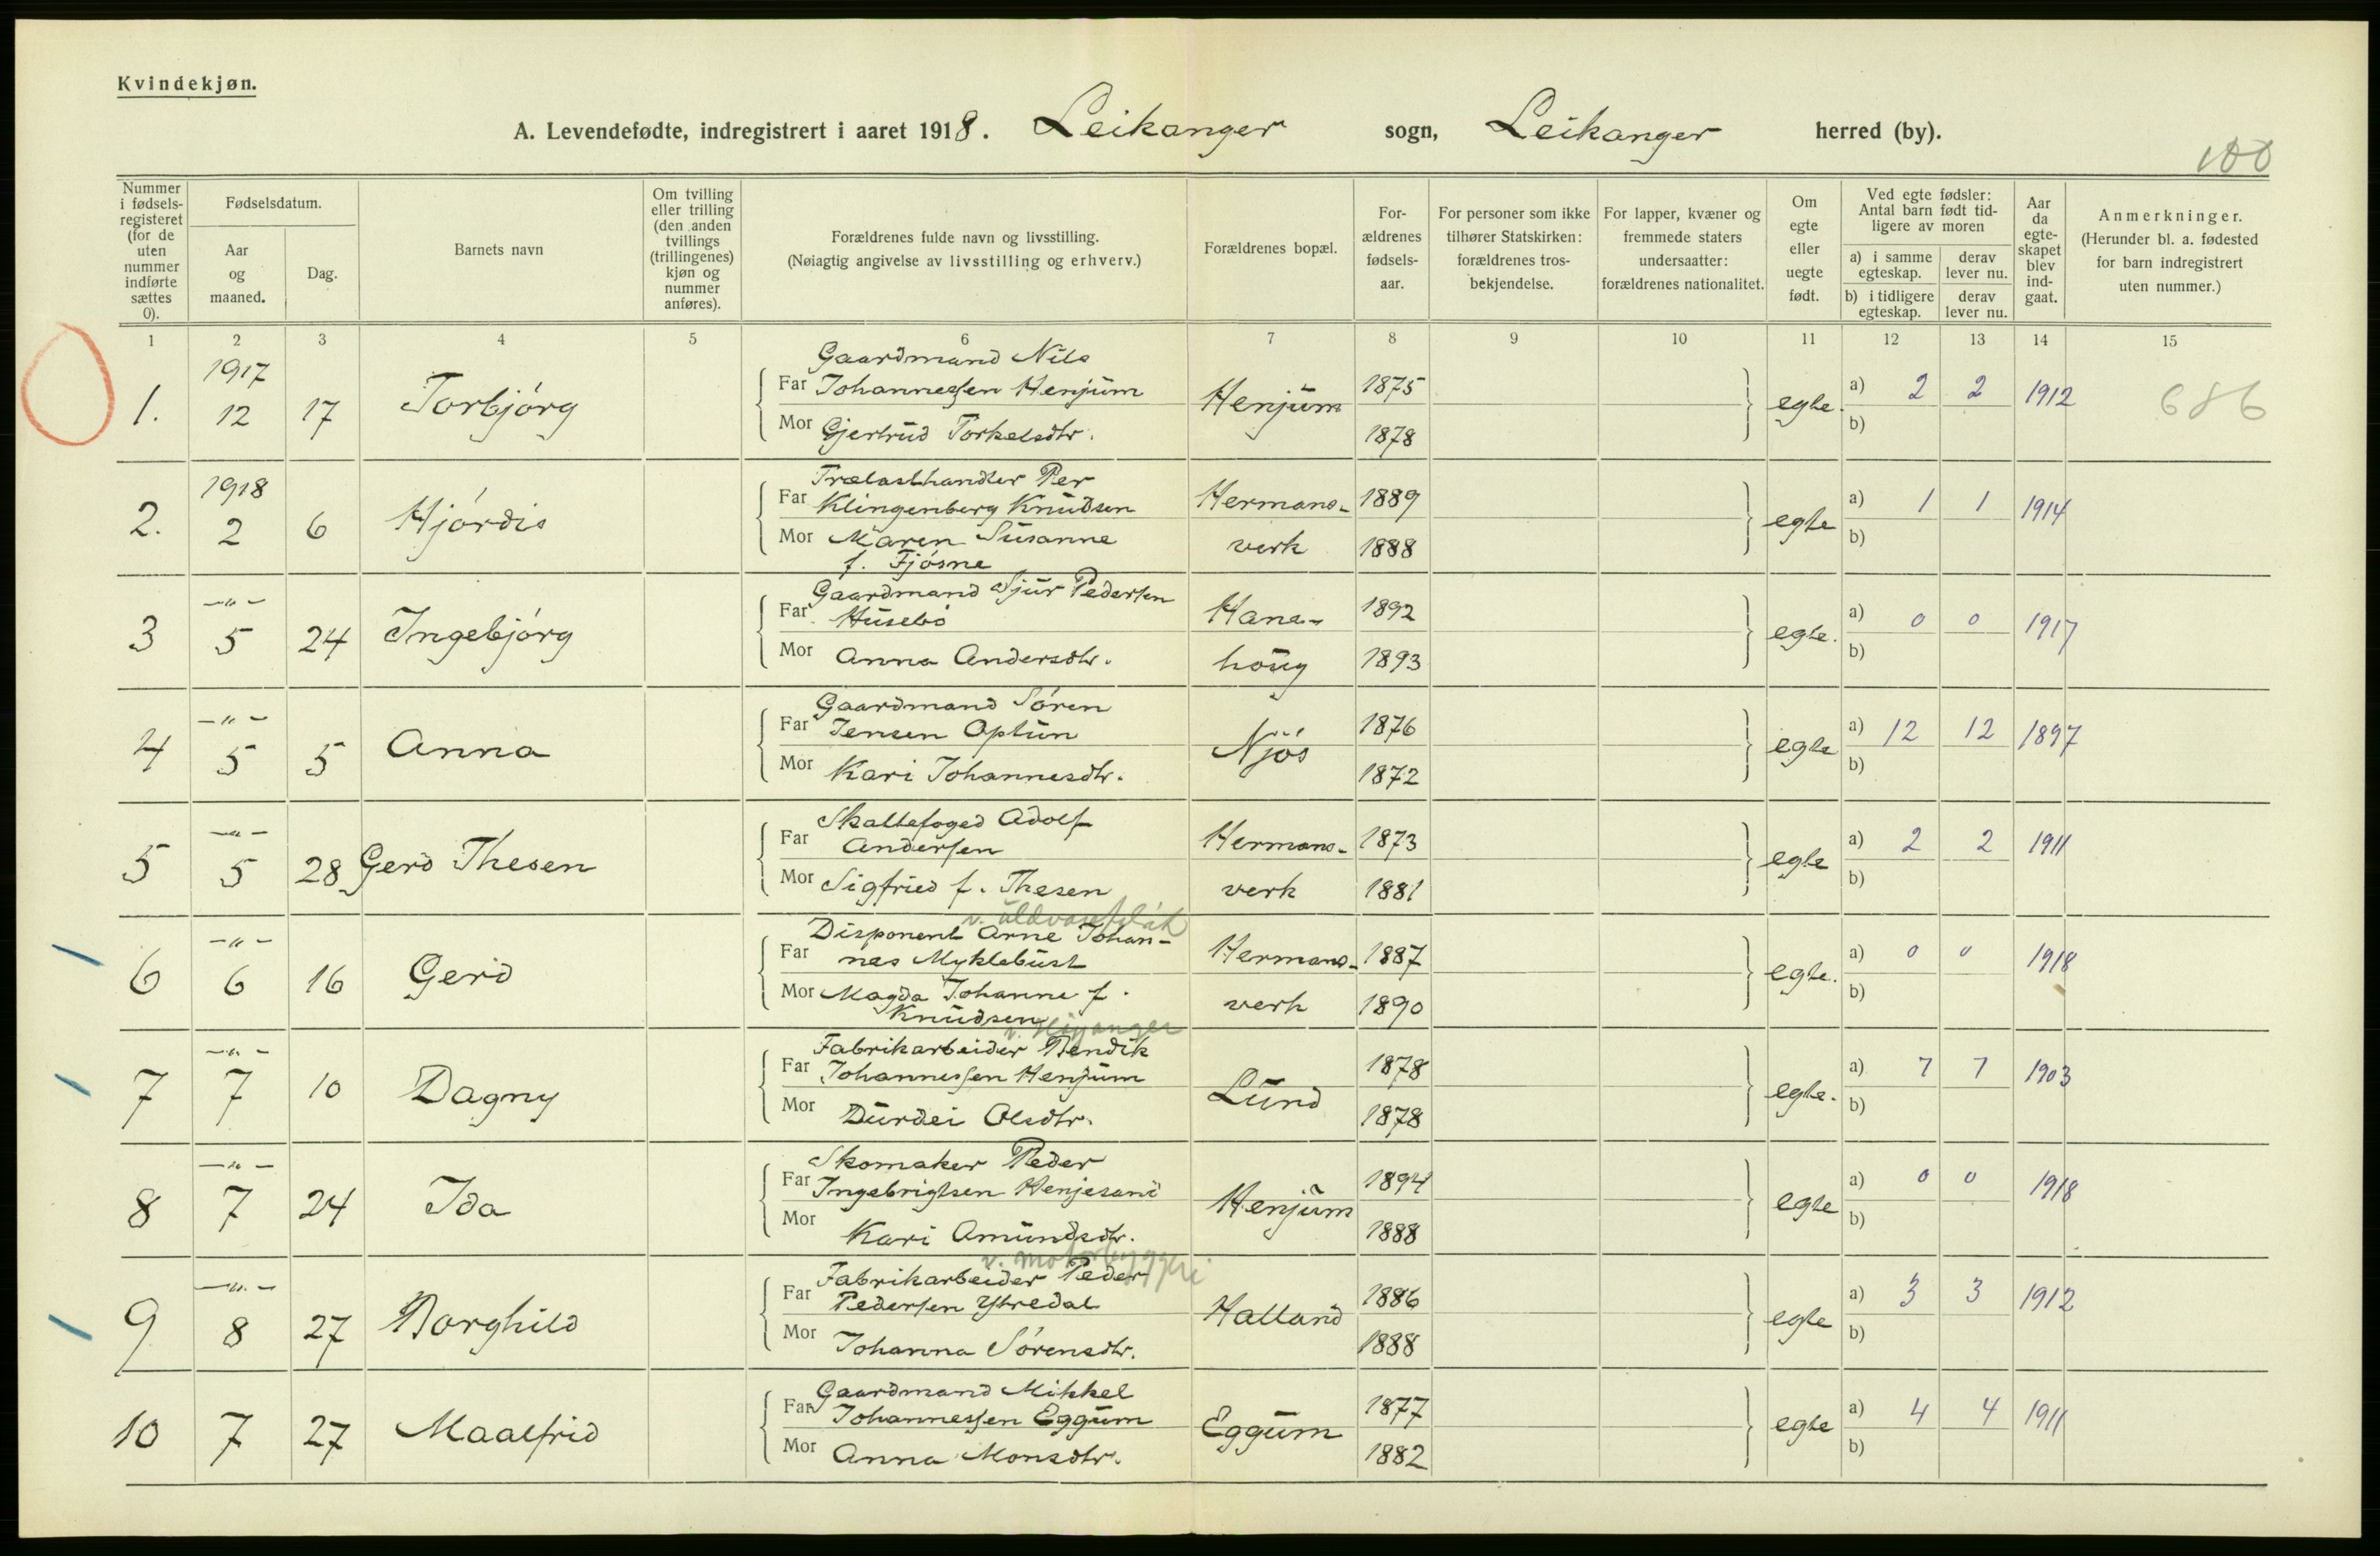 Kvindekjøn.
A. Levendefødte, indregistrert i aaret 1918. Leikanger sogn, Leikanger herred (by).
100
Nummer i fødsels-registeret (for de uten nummer indførte sættes 0).
Fødselsdatum.
Aar og maaned.
Dag.
Barnets navn
Om tvilling eller trilling (den anden tvillings (trillingenes) kjøn og nummer anføres).
Forældrenes fulde navn og livsstilling.
(Nøiagtig angivelse av livsstilling og erhverv.)
Forældrenes bopæl.
For-ældrenes fødsels-aar.
For personer som ikke tilhører Statskirken: forældrenes tros-bekjendelse.
For lapper, kvæner og fremmede staters undersaatter: forældrenes nationalitet.
Om egte eller uegte født.
Ved egte fødsler: Antal barn født tid-ligere av moren
a) i samme egteskap.
derav lever nu.
b) i tidligere egteskap.
derav lever nu.
Aar da egte-skapet blev ind-gaat.
Anmerkninger.
(Herunder bl. a. fødested for barn indregistrert uten nummer.)
1 2 3 4 5 6 7 8 9 10 11 12 13 14 15
1917 Gaardmand Nils
1. 12 17 Torbjörg Far Johannessen Henjum Henjum 1875 egte. a) 2 2 1912 686
Mor Gjertrud Torkelsdtr. 1878 b)
1918 Trælasthandler Per
2. 2 6 Hjördis Far Klingenberg Knudsen Hermans- 1889 egte a) 1 1 1914
Mor Maren Susanne verk 1888 b)
f. Fjösne
—"— Gaardmand Sjur Pedersen
3 5 24 Ingebjörg Far Husebö Hane- 1892 egte. a) 0 0 1917
Mor Anna Andersdtr. houg 1893 b)
—"— Gaardmand Sören
4 5 5 Anna Far Jensen Optun Njös 1876 egte a) 12 12 1897
Mor Kari Johannesdtr. 1872 b)
—"— Skattefoged Adolf
5 5 28 Gerd Thesen Far Andersen Hermans- 1873 egte a) 2 2 1911
Mor Sigfried f. Thesen verk 1881 b)
v. uldvarefabrik
—"— Disponent Arne Johan-
6 6 16 Gerd Far nes Myklebust Hermans- 1887 egte. a) 0 0 1918
Mor Magda Johanne f. verk 1890 b)
Knudsen
v. Höyanger
—"— Fabrikarbeider Bendik
7 7 10 Dagny Far Johannessen Henjum Lund 1878 egte. a) 7 7 1903
Mor Durdei Olsdtr. 1878 b)
—"— Skomaker Peder
8 7 24 Ida Far Ingebrigtsen Henjesand Henjum 1894 egte a) 0 0 1918
Mor Kari Amundsdtr. 1888 b)
v. motorbyggeri
—"— Fabrikarbeider Peder
9 8 27 Borghild Far Pedersen Ytredal Halland 1886 egte a) 3 3 1912
Mor Johanna Sörensdtr. 1888 b)
Gaardmand Mikkel
10 7 27 Maalfrid Far Johannessen Eggum Eggum 1877 egte a) 4 4 1911
Mor Anna Monsdtr. 1882 b)